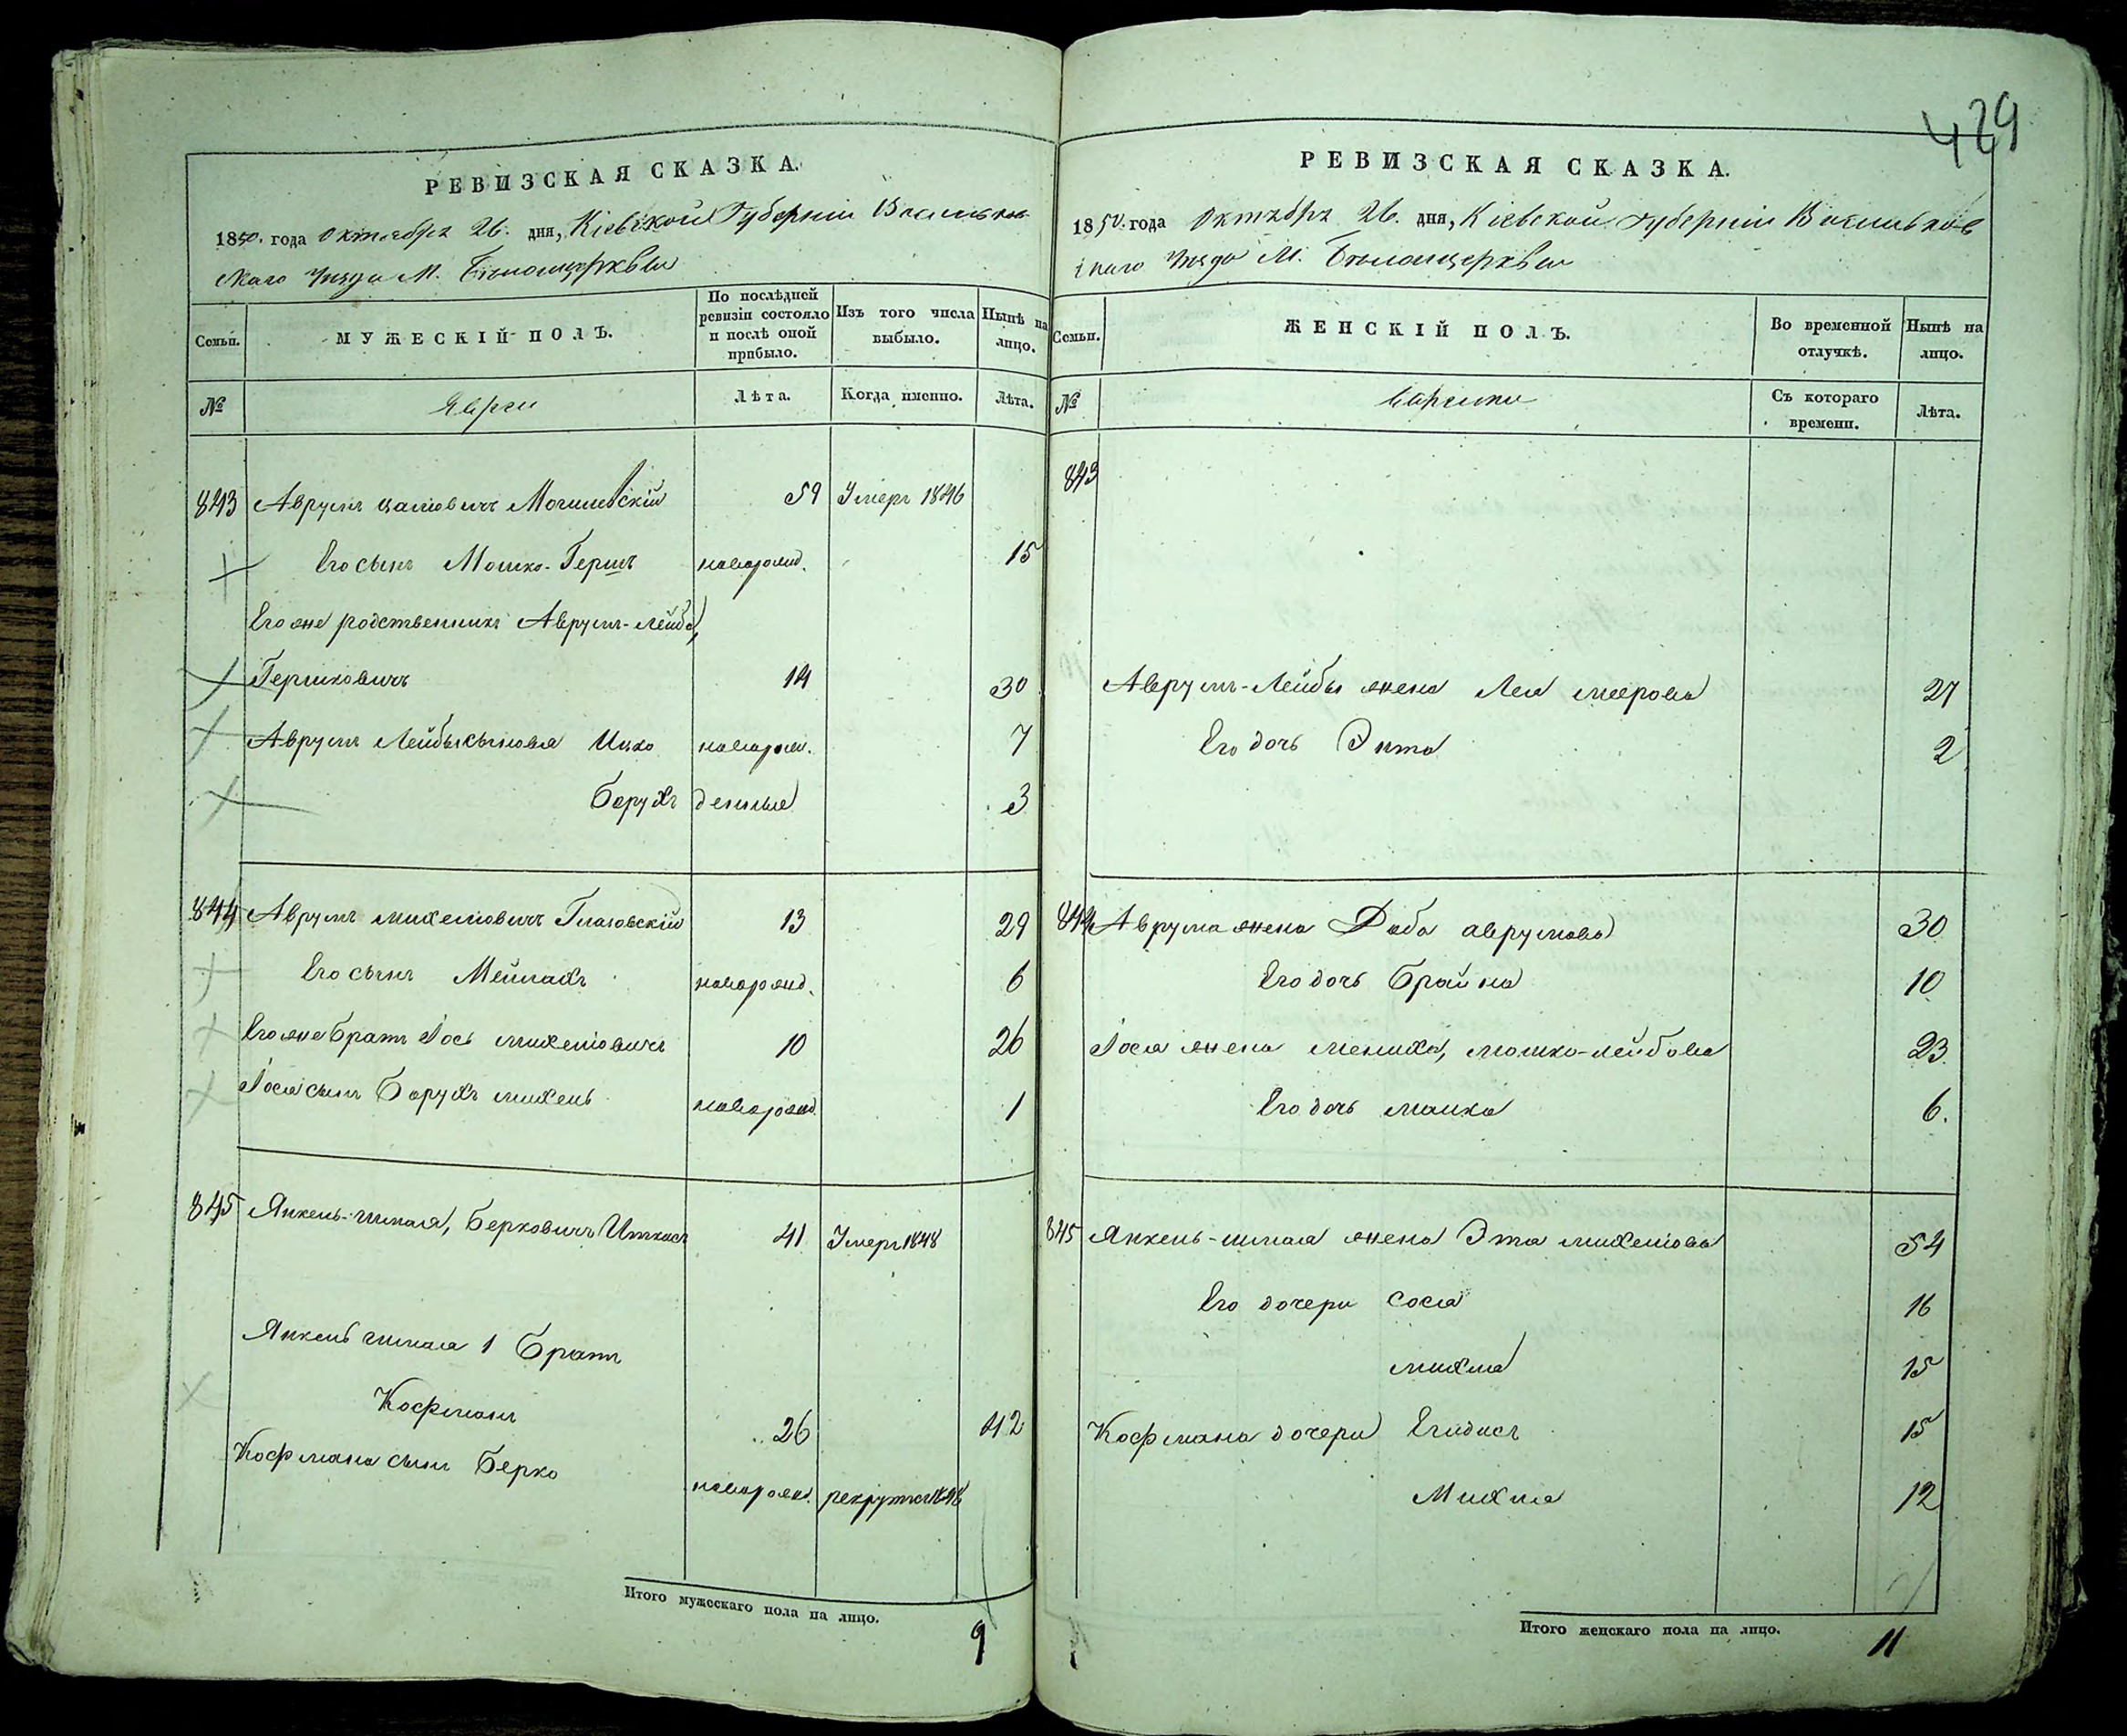 429
РЕВИЗСКАЯ СКАЗКА.
1850. года Октября 26. дня, Кіевской Губерніи Васильков-
скаго уезда М. Белоцерквы
Семьи.
МУЖЕСКІЙ ПОЛЪ.
По послѣдней ревизіи состояло и послѣ оной прибыло.
Изъ того числа выбыло.
Нынѣ на лицо.
№
Евреи
Лѣта.
Когда именно.
Лѣта.
843 Аврумъ Могилевскій 59 Умеръ 1846
Его сынъ Мошко-Гершъ новорожд. 15
Его же родственникъ Аврумъ-Лейба,
Гершковичъ 14 30
Аврумъ Лейбы сыновья Ицко новорож. 7
Борухъ денные 3
844 Аврумъ михелiовичъ 13 29
Его сынъ Мейлахъ новорожд. 6
Его же братъ Іось михелiовичъ 10 26
Іося сынъ Борухъ михель новорожд. 1
845 Янкель-шмая, Берковичъ 41 Умеръ 1848
Янкель шмая 1 братъ
Кофманъ 26 42
Кофмана сынъ Берко новорожд. 1848
Итого мужескаго пола на лицо. 9
РЕВИЗСКАЯ СКАЗКА.
1850. года Октября 26. дня, Кіевской губерніи Васильков-
скаго уезда М. Белоцерквы
Семьи.
ЖЕНСКІЙ ПОЛЪ.
Во временной отлучкѣ.
Нынѣ на лицо.
№
Еврейки
Съ котораго времени.
Лѣта.
843
Аврумъ-Лейбы жена Лея меерова 27
Его дочь 2
844 Аврума жена Доба аврумова 30
Его дочь Брайна 10
Іося жена мошко-лейбова 23
Его дочь малка 6.
845 Янкель-шмая жена Эта михелiова 54
Его дочери сося 16
михля 15
Кофмана дочери 15
Михля 12
Итого женскаго пола на лицо. 11